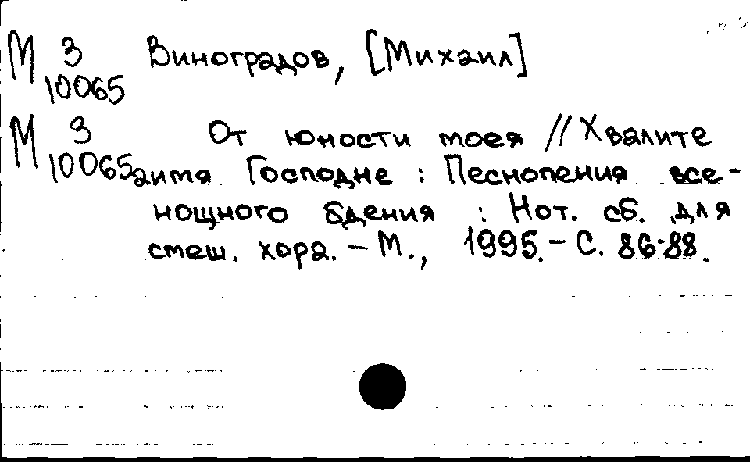 М 3 Виноградов, [Михаил]
10065
М 3 От юности моея // Хвалите
10065 имя Господне : Песнопения все-
нощного бдения : Нот. сб. для
смеш. хора. – М., 1995. – С. 86-88.